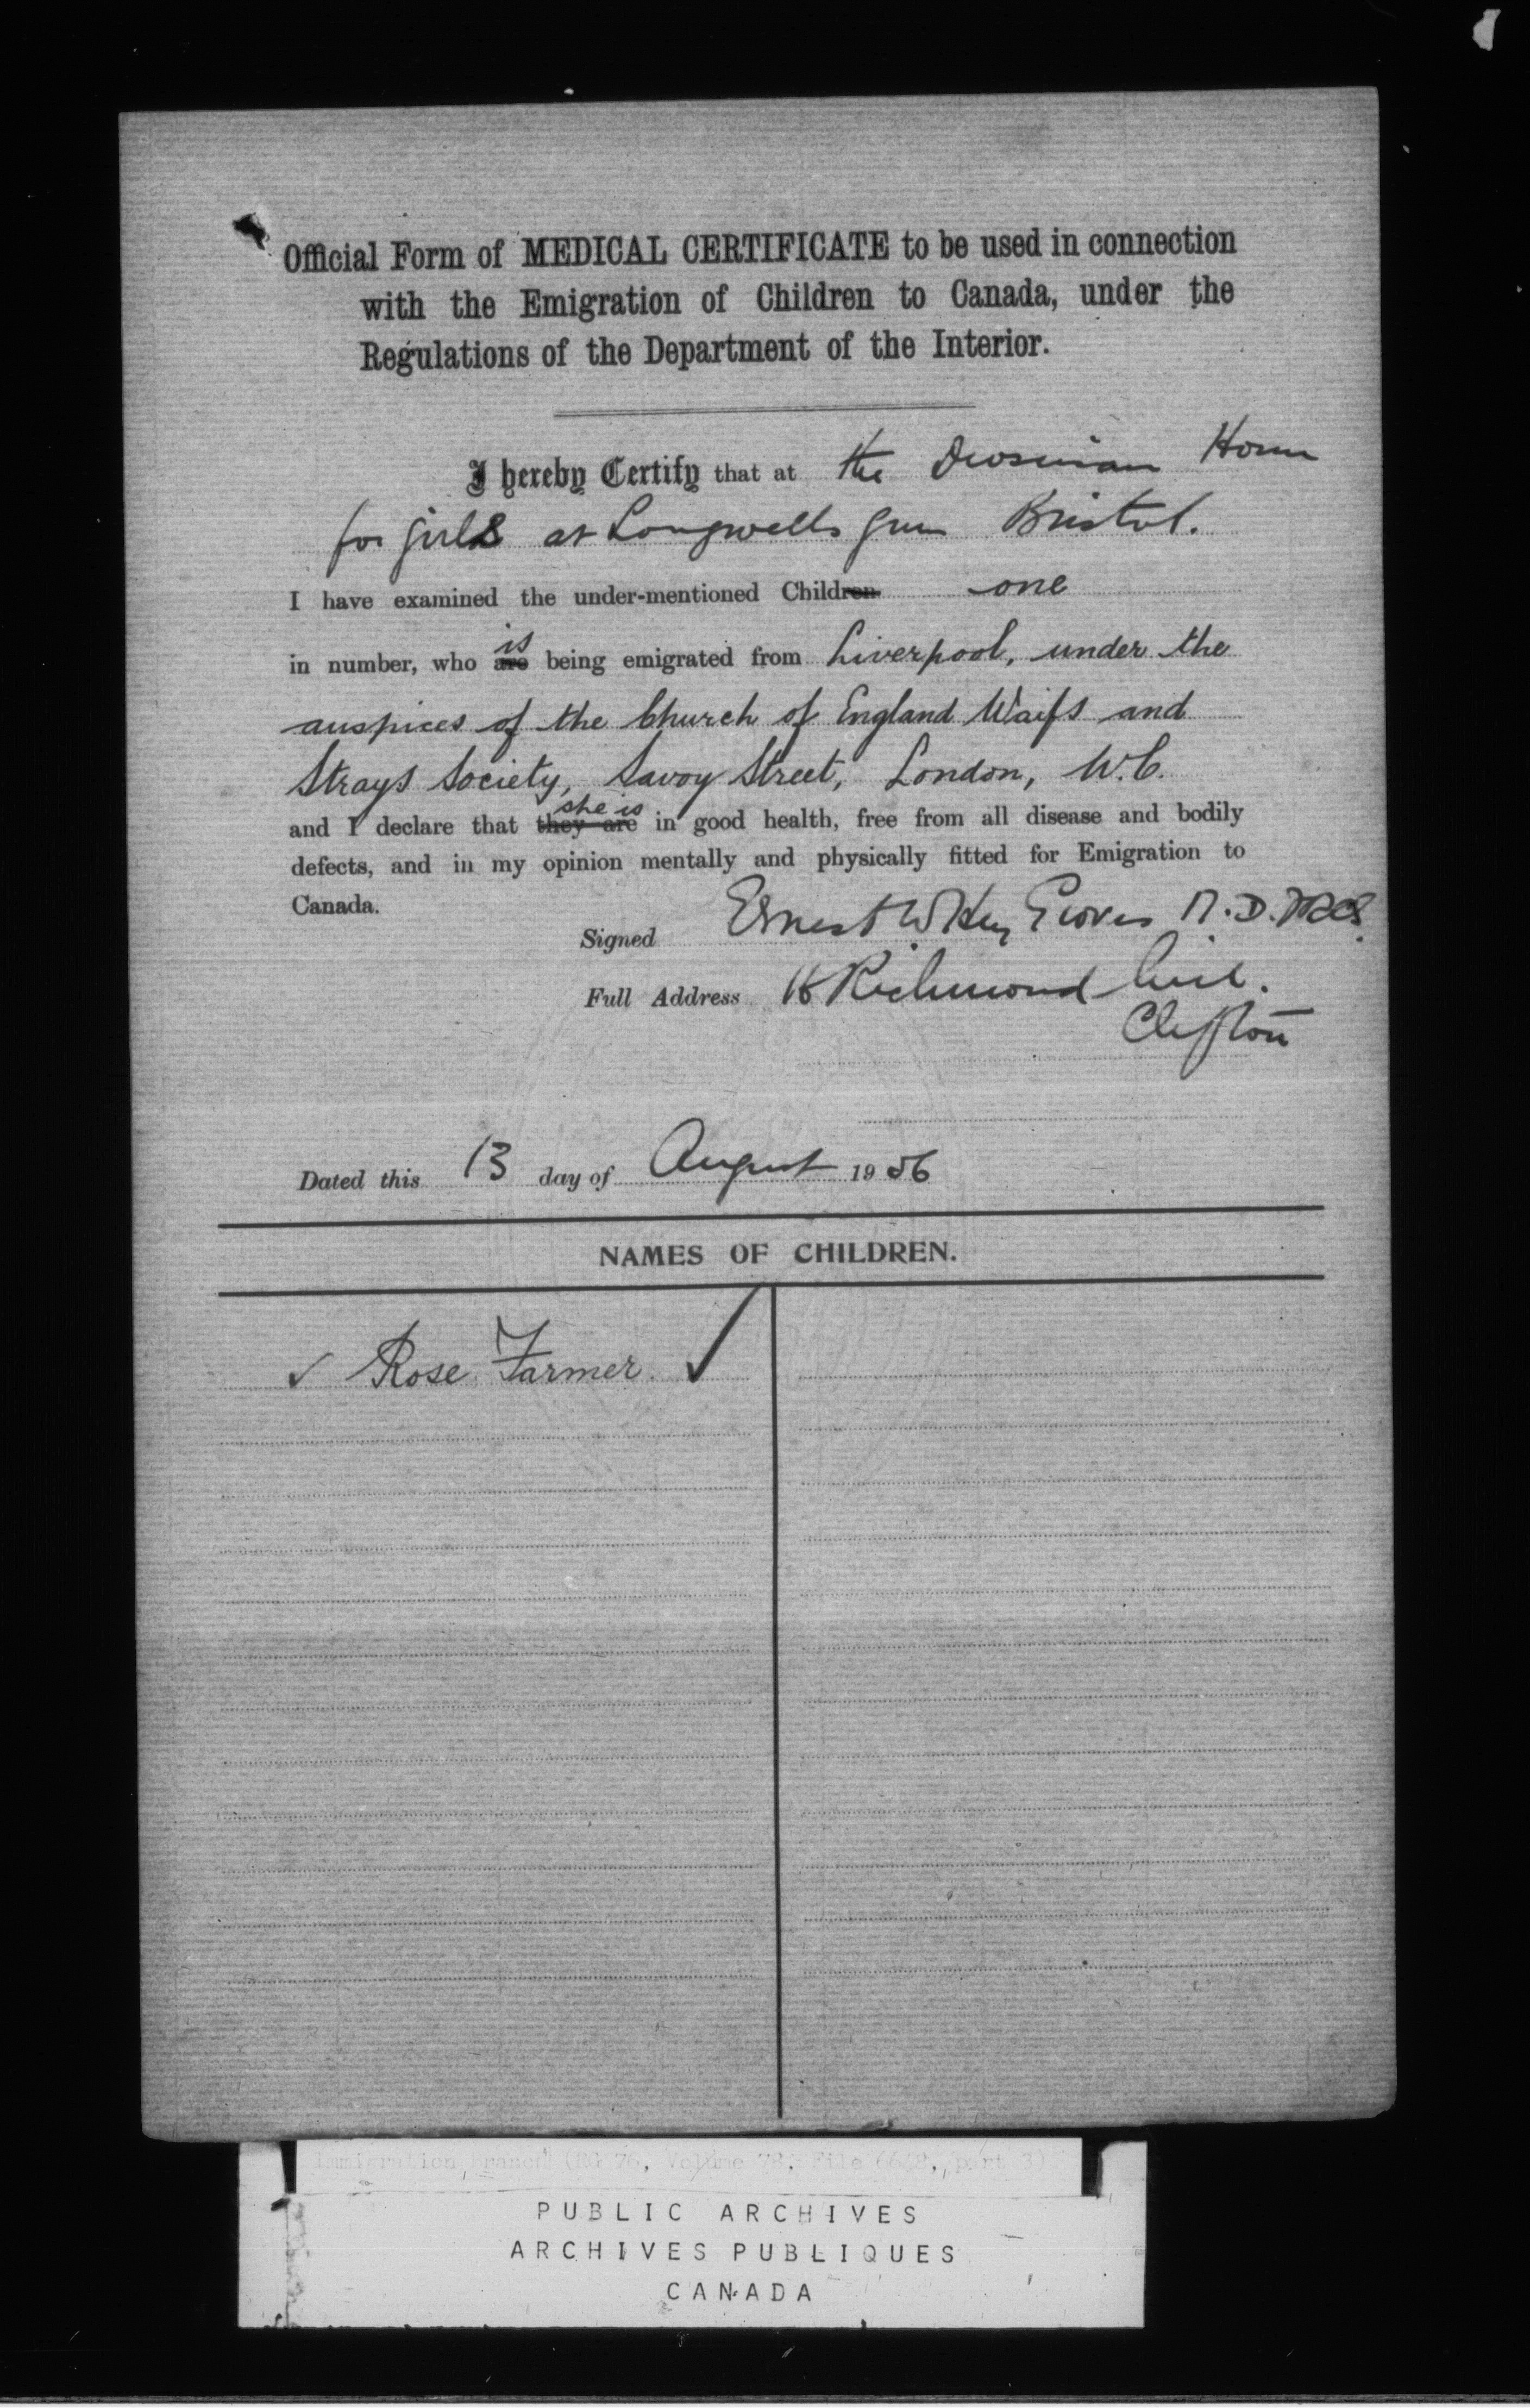 Official Form of MEDICAL CERTIFICATE to be used in connection
with the Emigration of Children to Canada, under the
Regulations of the Department of the Interior.
I hereby Certify that at the Home
for girls at Longwells Bristol.
I have examined the under-mentioned Children one
in number, who are is being emigrated from Liverpool, under the
auspices of the Church of England Waifs and
Strays Society, Savoy Street, London, W.C.
and I declare that they are she is in good health, free from all disease and bodily
defects, and in my opinion mentally and physically fitted for Emigration to
Canada.
Signed Ernest W Hey Groves M.D.
Full Address Richmond Hill.
Clifton
Dated this 13 day of August 1906
NAMES OF CHILDREN.
✓ Rose Farmer. ✓
Immigration Branch (RG 76, Volume 78, File 6648, part 3)
PUBLIC ARCHIVES
ARCHIVES PUBLIQUES
CANADA